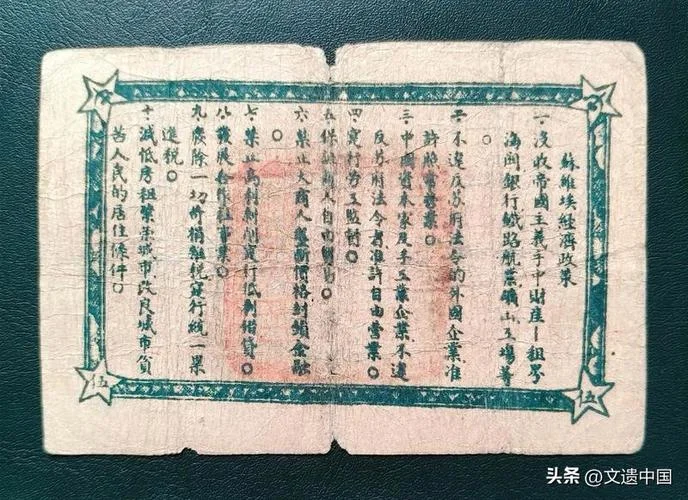 蘇維埃經濟政策
一、没收帝國主義手中財産—租界
海関銀行鉄路航業礦山工場等
○
二、不違反苏府法令的外國企業准
許照常营業○
三、中國資本家及手工業企業不違
反苏府法令者准許自由营業○
四、實行劳工監督○
五、保护商人自由貿易○
六、禁止大商人壟断價格封鎖金融
○
七、禁止高利剥削實行低利借貸○
八、發展合作社事業○
九、廢除一切苛捐雜税實行統一累
進税○
十、减低房租繁荣城市改良城市貧
苦人民的居住條件○
伍
伍
头条 @文遗中国